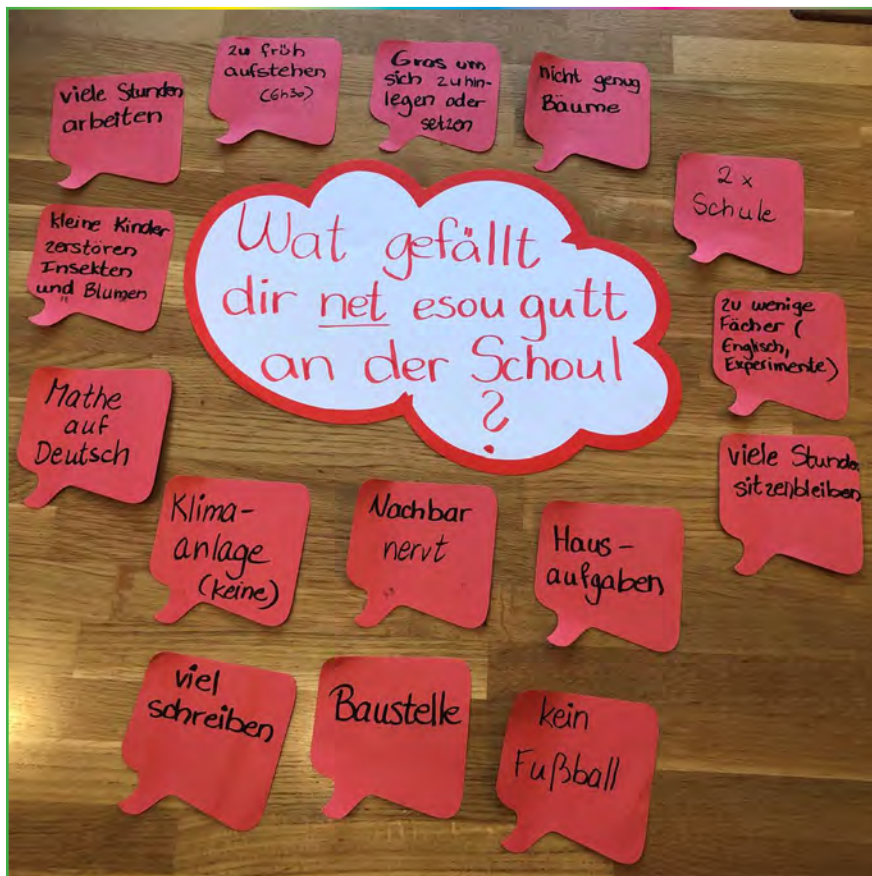 viele Stunden
arbeiten
zu früh
aufstehen
(6h30)
Gras um
sich zu hin-
legen oder
setzen
nicht genug
Bäume
2 x
Schule
kleine Kinder
zerstören
Insekten
und Blumen
Wat gefällt
dir net esou gutt
an der Schoul
?
zu wenige
Fächer (
Englisch,
Experimente)
Mathe
auf
Deutsch
viele Stunden
sitzenbleiben
Klima-
anlage
(keine)
Nachbar
nervt
Haus-
aufgaben
viel
schreiben
Baustelle
kein
Fußball